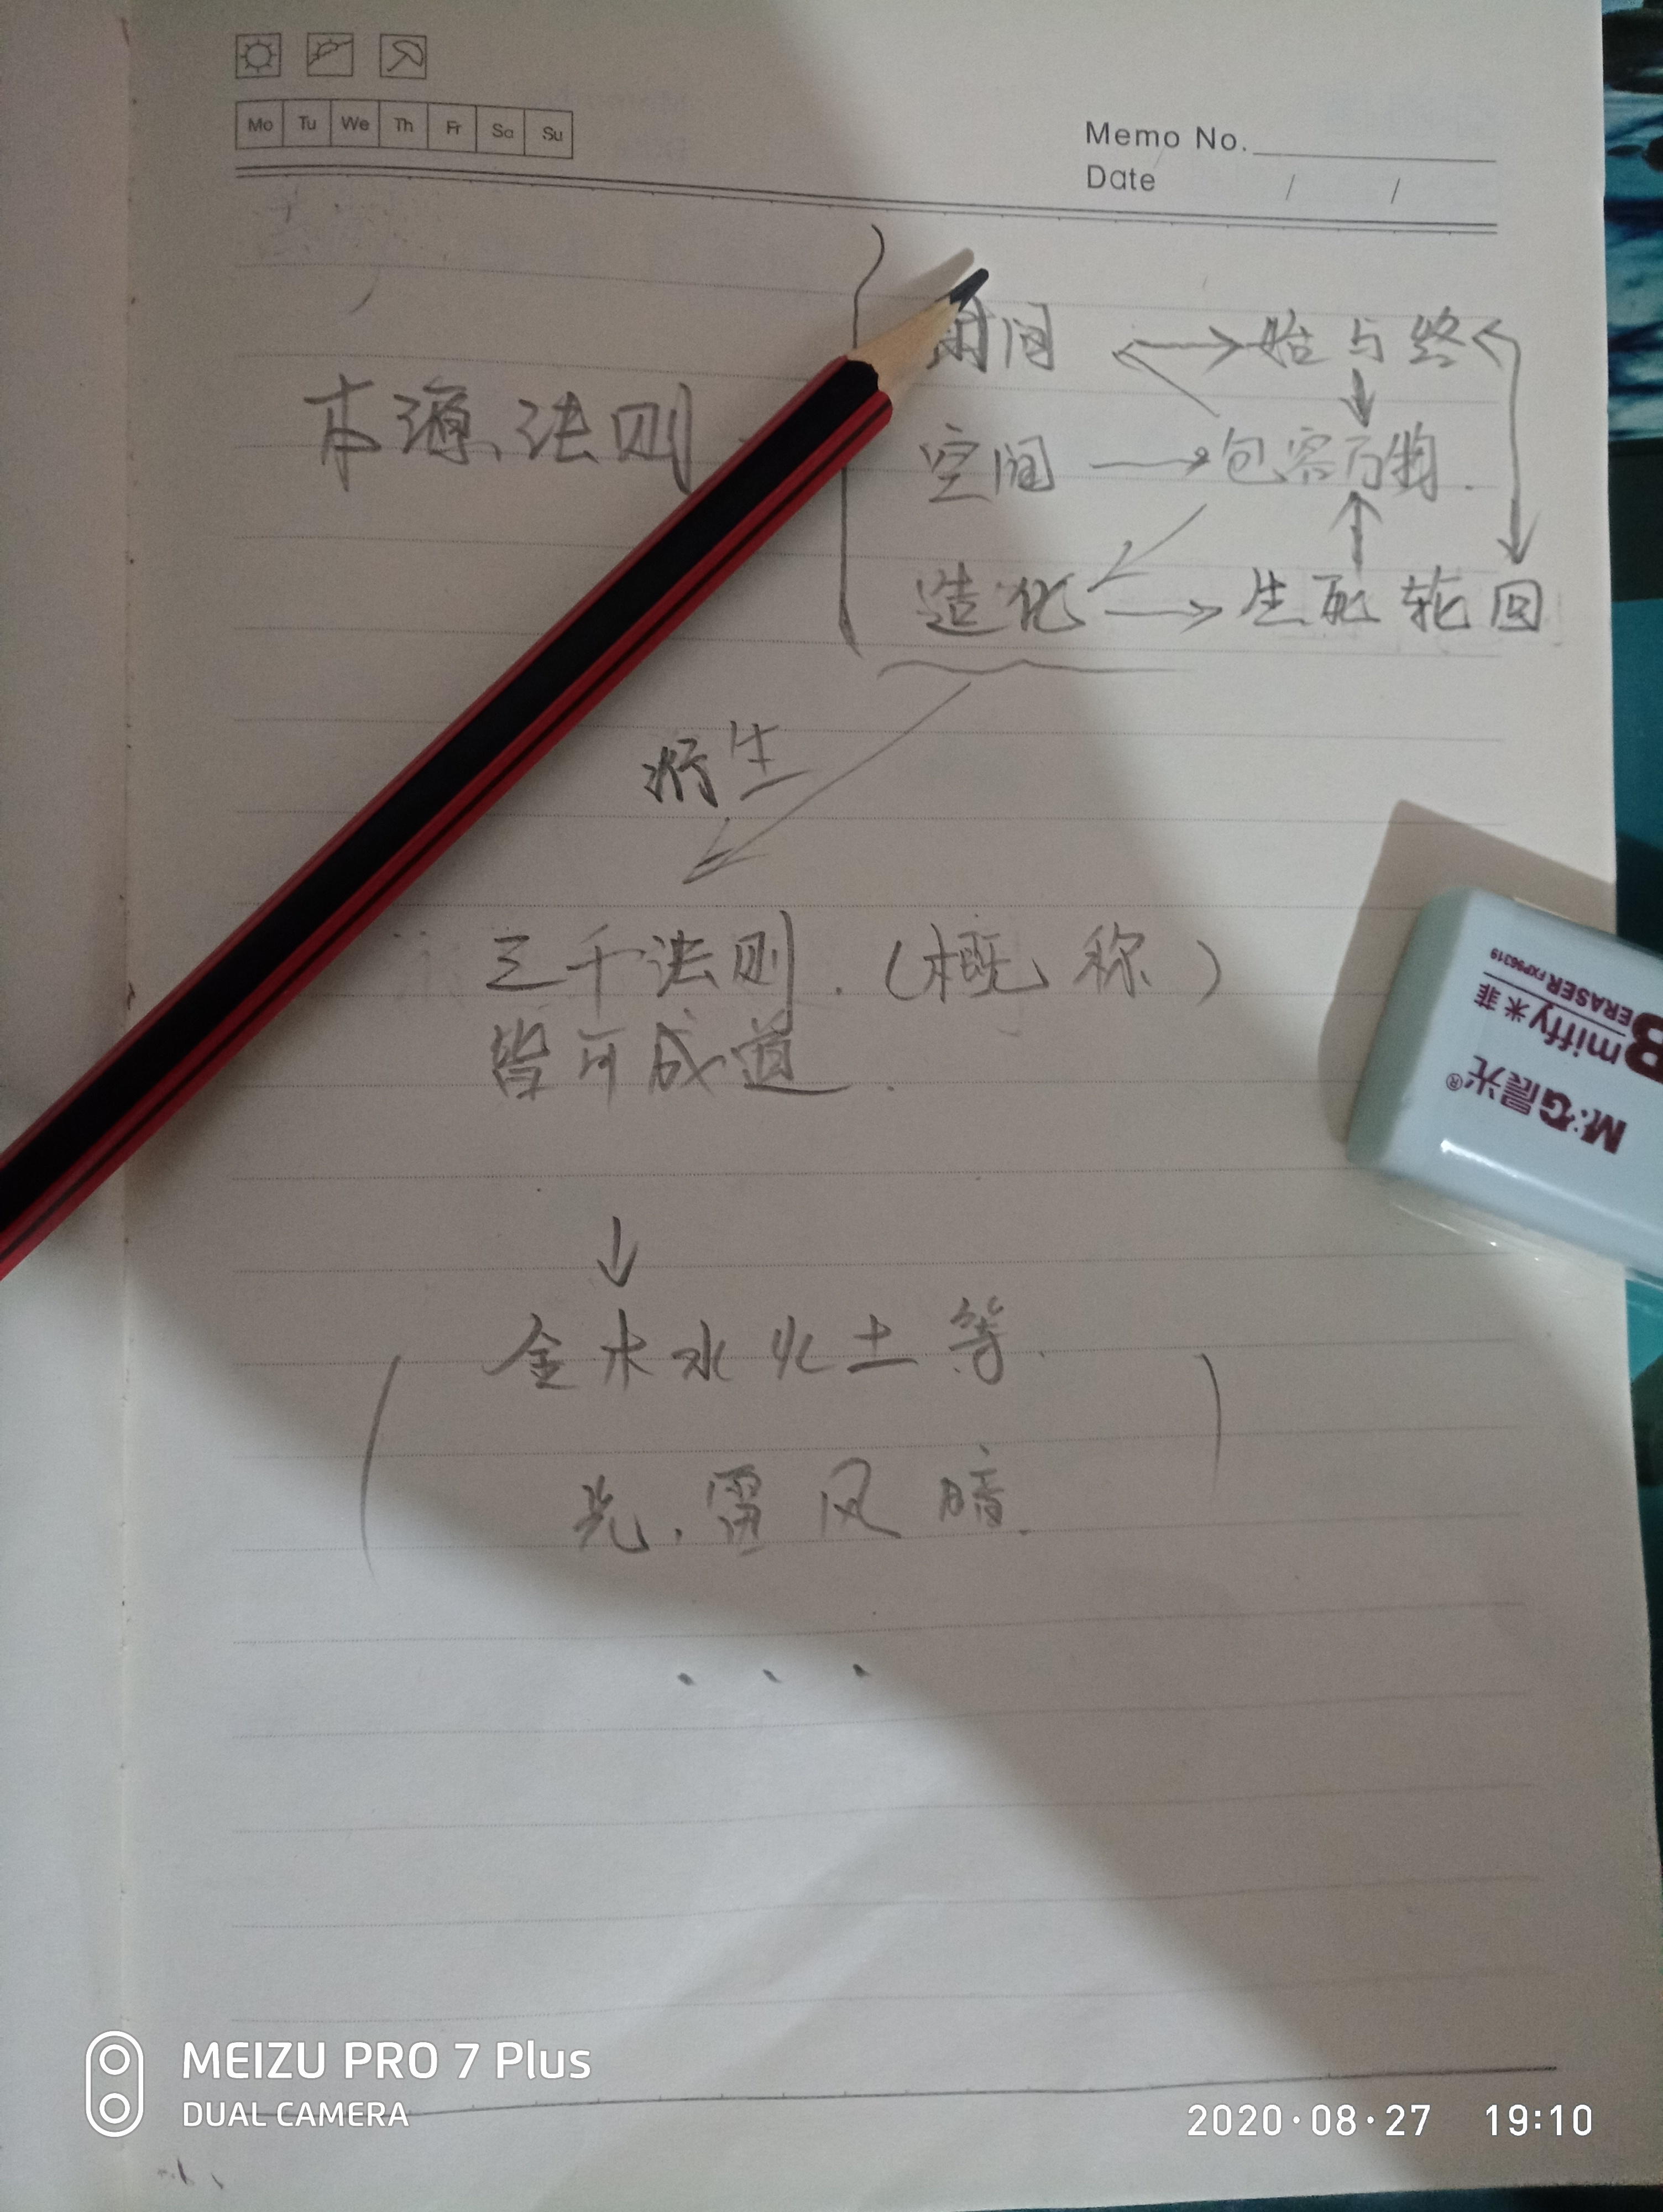 Mo Tu We Th Fr Sa Su
Memo No.
Date / /
时间 始与终
本源法则
空间 包容万物.
造化 生死轮回
衍生
三千法则.(概称)
皆可成道.
金木水火土等.
光,雷风暗.
...
M&G晨光®
miffy米菲
B
ERASER FXP96319
MEIZU PRO 7 Plus
DUAL CAMERA
2020·08·27 19:10